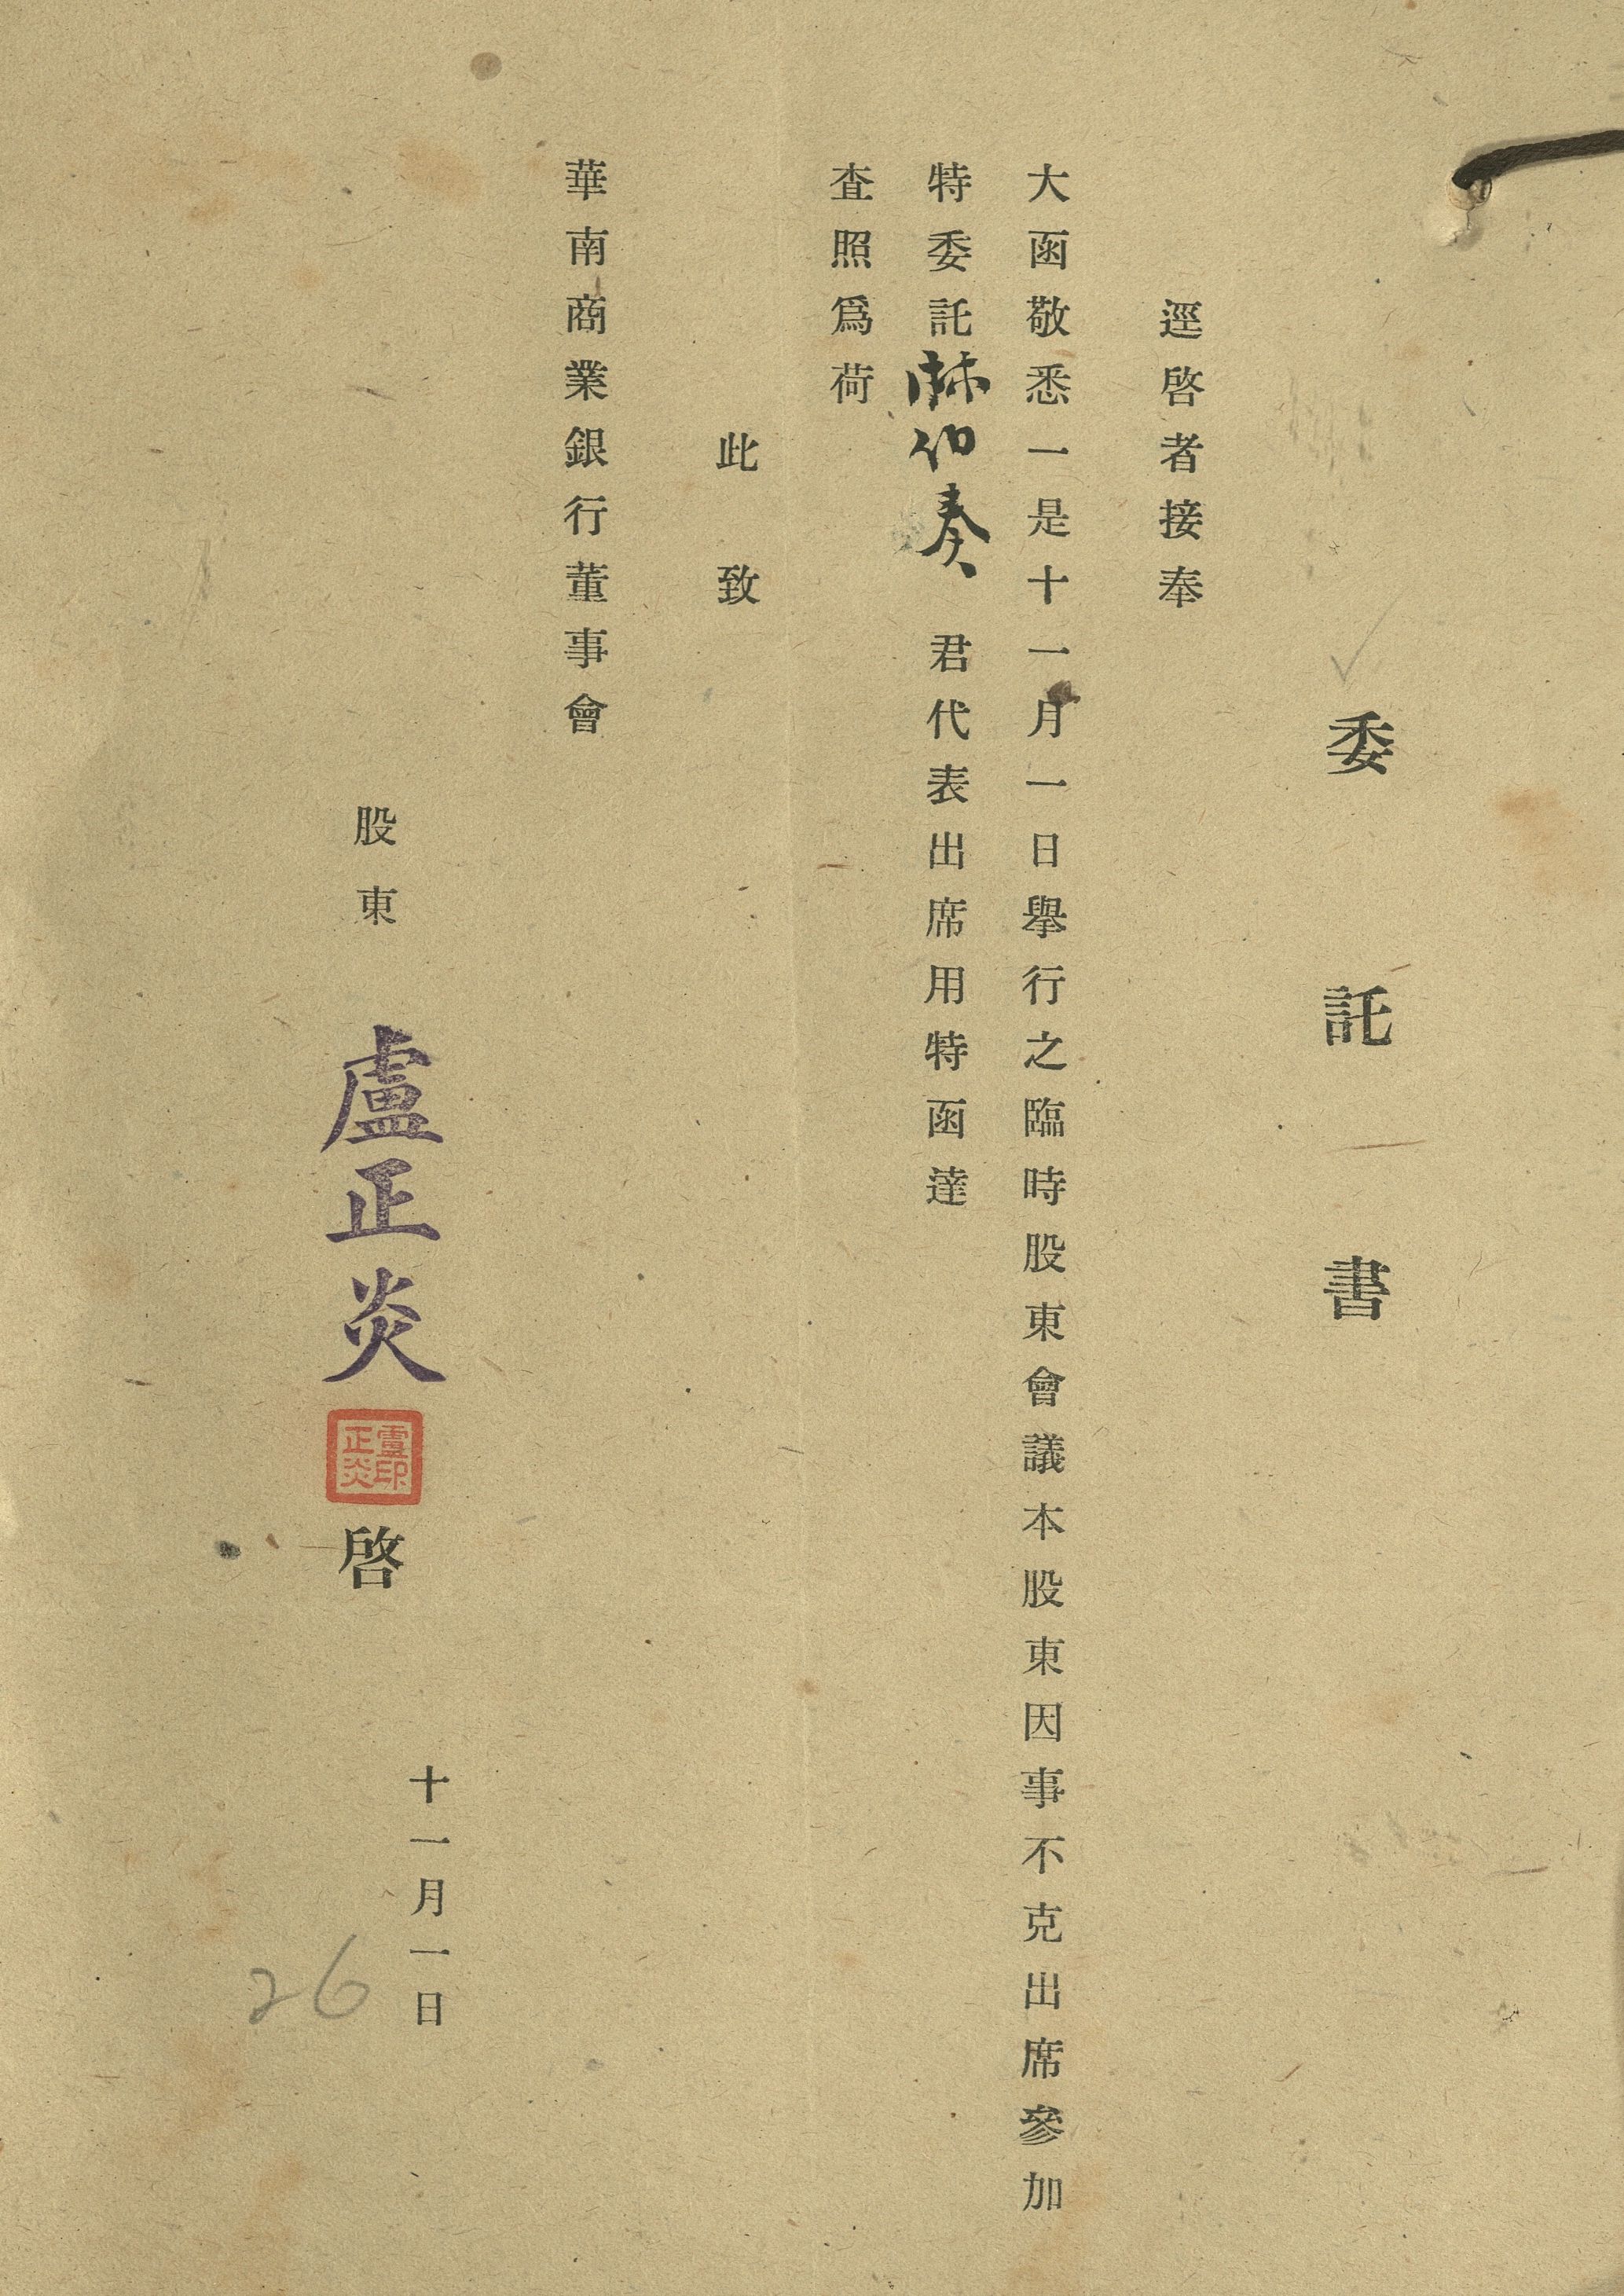 委託書
逕啓者接奉
大函敬悉一是十一月一日舉行之臨時股東會議本股東因事不克出席參加
特委託林伯奏君代表出席用特函達
查照爲荷
此致
華南商業銀行董事會
十一月一日
股東 盧正炎 啓
盧印
正炎
26